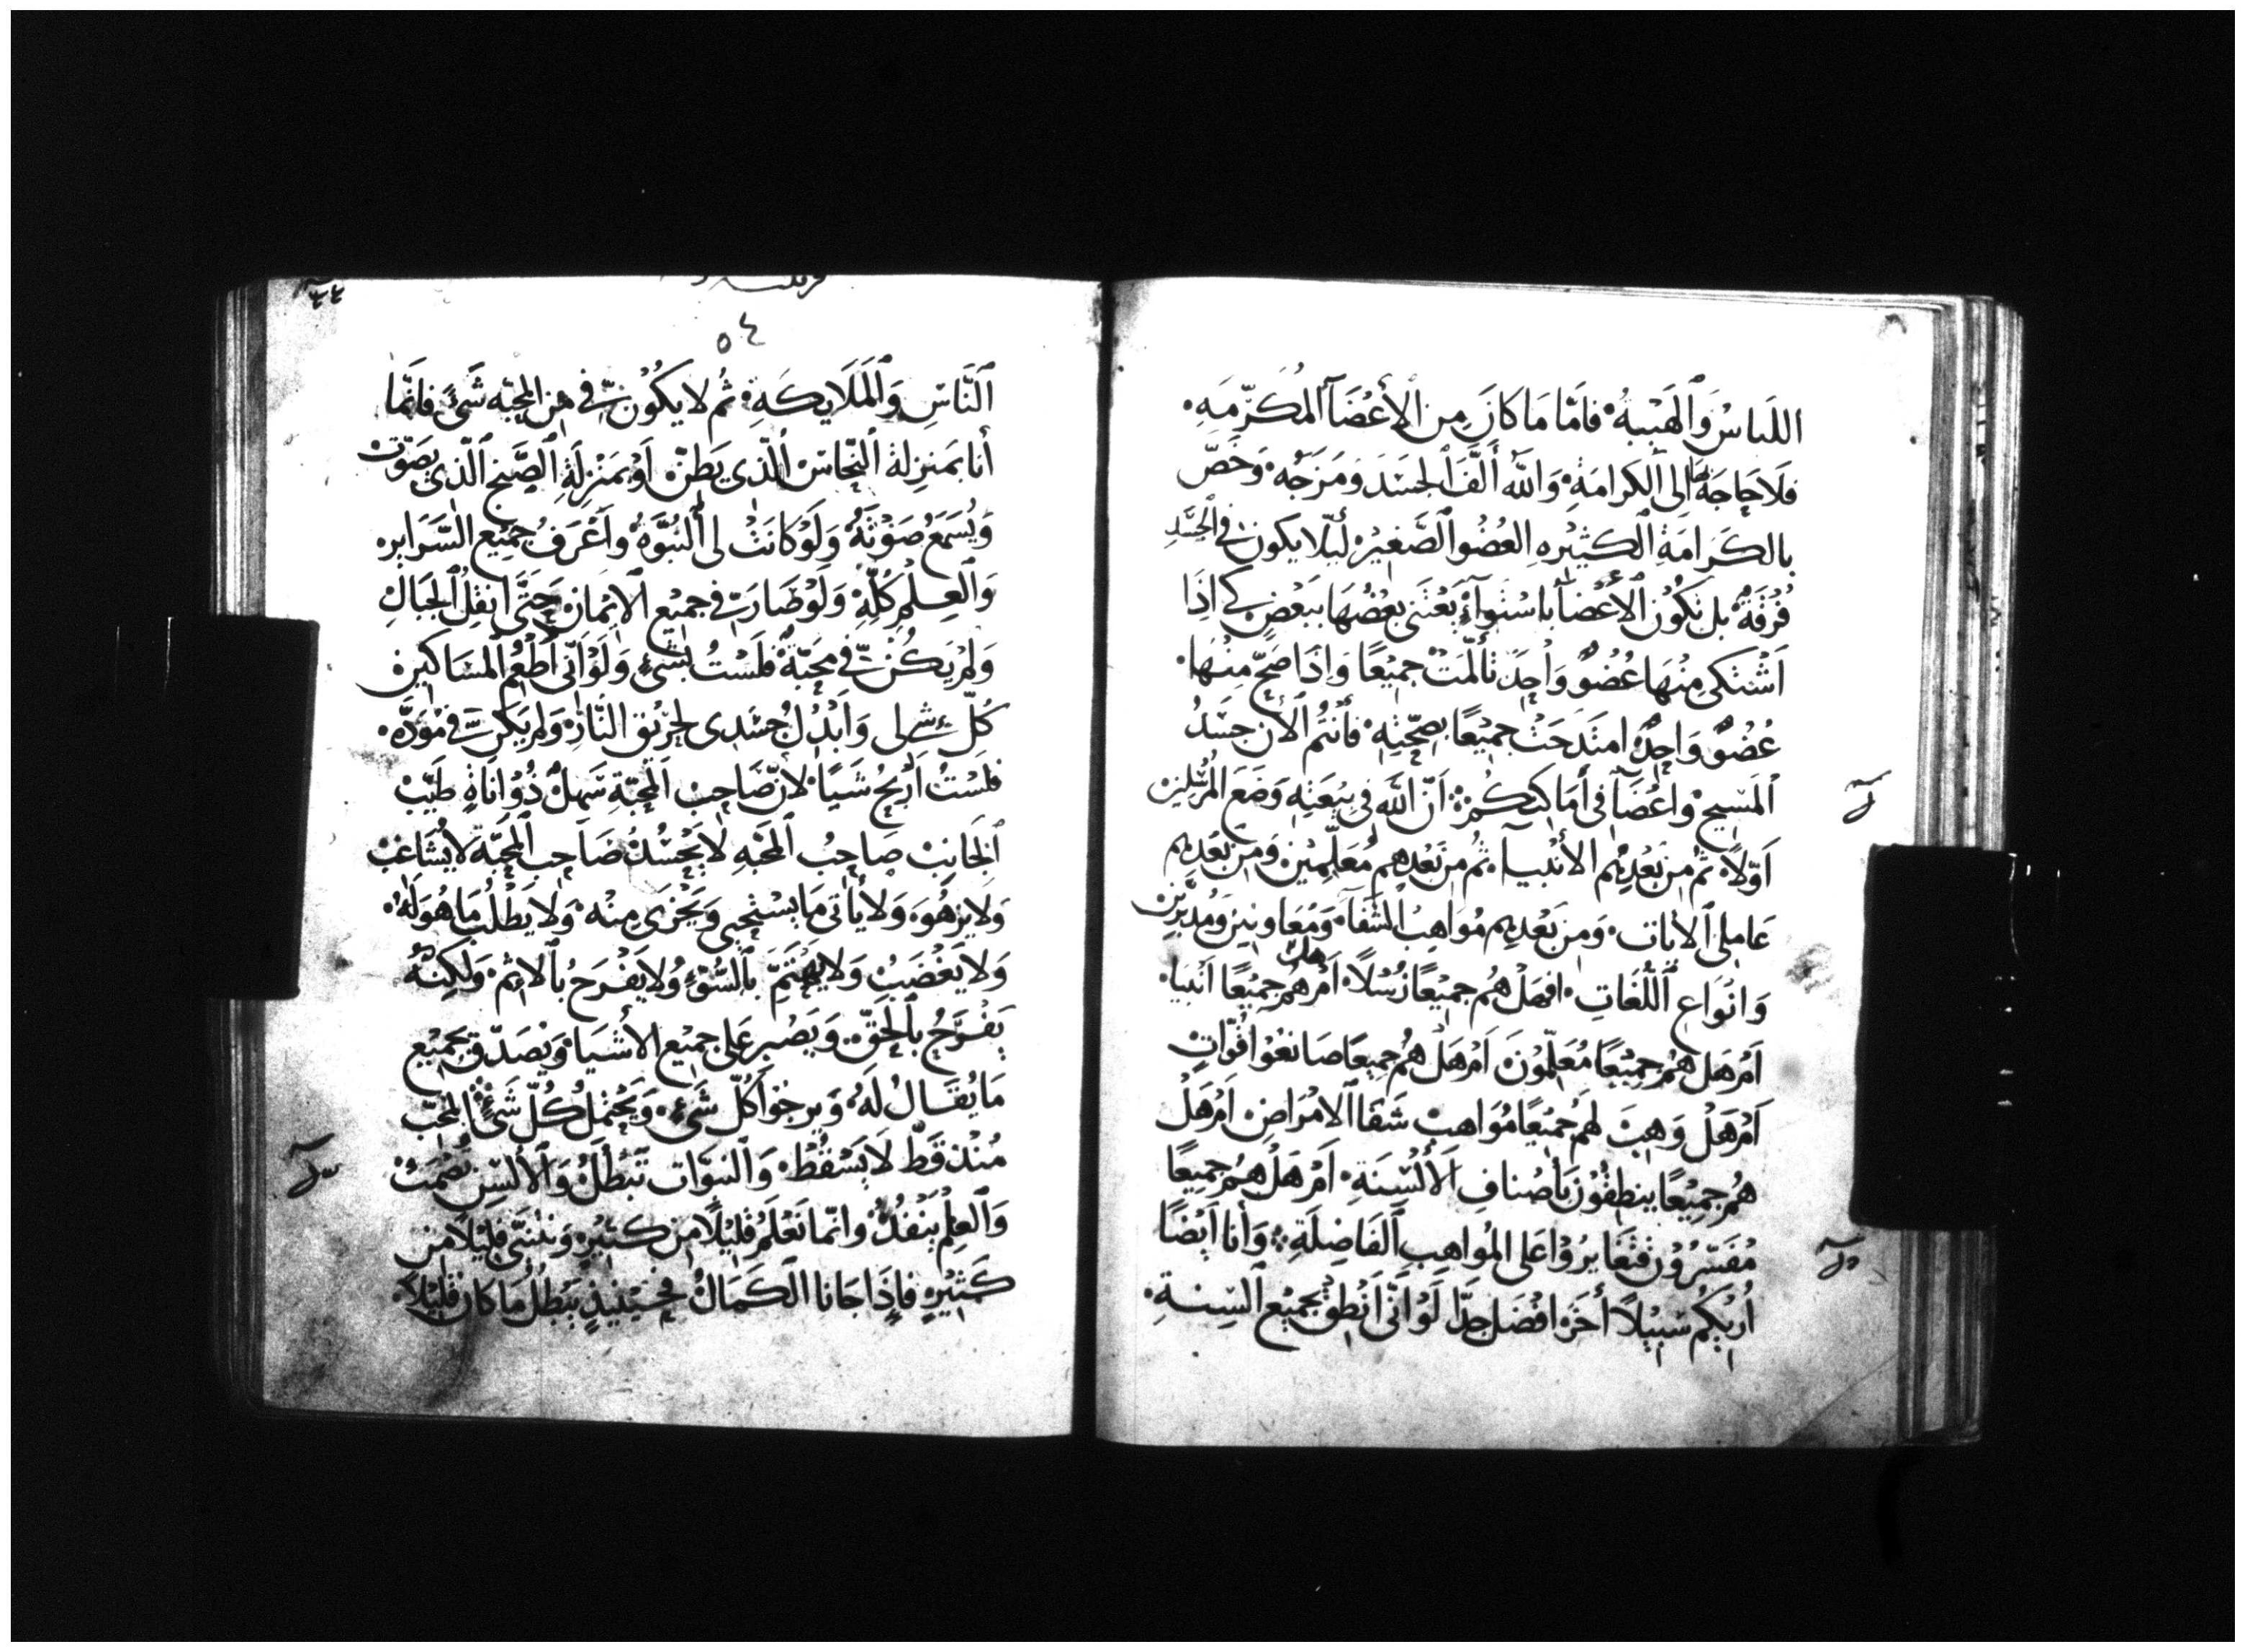 اللباسُ وَالهَيْبةُ فامّا مَا كانَ مِن الأعْضَآ المُكَرّمَهِ
فلَا حَاجَة لها الى الكرامَةِ وَاللّه ألَّفَ الجسَدَ وَمَزَجَه وَخَصّ
بالكَرَامَةِ الكثيْرهِ العُضْو الصَّغيرْ لئِلّا يكون في الجسَدِ
فُرْقَةٌ بل تكوُن الأعْضآ باسْتوآءْ يَعْتَنى بعْضُهَا ببَعْض كي اذَا
اَشْتكى مِنْهَا عُضُوٌ وَاحِدْ تألّمَتْ جميْعًا وَاِذَا صَحّ مِنْهَا
عُضوٌ وَاحِدٌ امتَدَحَتْ جميْعًا بصِحّتِهِ فأنتُم الأن جسَدُ
المسَيح واعْضَآ في أمَاكنكُمْ انّ اللّه في بيْعَتِهِ وَضَعَ المُرْسَلين
اَوّلاً ثمّ من بَعْدِهُم الأنبيآء ثم من بعْدِهم مُعَلّمِيْن وَمِن بَعْدِهِم
عَامِلى الايات وَمِن بَعْدِهِم مُوَاهِبُ الشّفآ وَمُعَاونين وَمُدبّرين
وَانوَاع اللّغَاتِ افهَلْ هُم جميْعًا رُسْلاً اَمْ هل هُم جميْعًا انْبيا
اَمْ هَل هُم جميْعًا مُعَلّمِوْنَ اَمْ هَلْ هُم جميعًا صَانعُوا قوّاتٍ
اَمْ هَلْ وَهِبَ لهمُ جميْعًا مُوَاهبْ شفَا الامْرَاضِ اَمْ هَلْ
هُم جميْعًا ينطِقوْن بأصْنافِ الألْسِنَةِ اَمْ هَلْ هُم جميْعًا
مُفسّرُوْن فتغَايرُوْا عَلى المُوَاهِبِ الفَاضِلَةِ وَأنا اَيضًا
اُريْكُم سَبيْلاً أخَرَ افضَل جدّا لوْ اَنّى اَنطِق بجميْع السِنةِ
٥٤
النَّاسِ وَالمَلَايكَةِ ثُم لا يكُوْن فيّ مِن المحبّه شَىْءً فانّما
أنا بمَنزِلة النّحاسْ الّذى يَطِنّ اَوْ بمَنْزِلَةِ الصَّنج الّذى يصَوّت
وَيُسْمَعُ صَوْتَهُ وَلَوْ كانَتْ لى النُبُوَّةُ وأعْرَفُ جميْع السَّرَايره
وَالعِلْم كُلّهِ وَلَوْ صَارَت فيّ جميْع الايْمَان حَتَّى انقِلُ الجَبَالِ
وَلمْ يَكُنْ فيّ محَبّةٌ فلَسْتُ بشىءٍ وَلَوْ اَنّى اُطْعُمِ المسَاكين
كُلّ شىءٍ لى وَاَبْذلُ جسَدى لحَرْيق النَّارْ وَلم يَكن فيّ مَوَدّه
فلسْتُ اَرْبحُ شَيًا لانّ صَاحِبْ المحَبّةِ سَهلٌ ذُوْ انَاةٍ طَيّبْ
الجَانِبْ صَاحِبُ المحَبّهِ لا يَحْسُدُ صَاحِب المحَبّةِ لا يُشَاغبْ
وَلا يزهُوَ وَلا يأتى مَا يسْتَحيى وَيخْزَى مِنْه وَلا يَطْلُب مَا هُوَ لَهُ
وَلا يَغضَبْ وَلا يهْتَمّ بالسُّوْءٍ وُلا يَفْرَحُ بالاثمِ وَلكِنهُ
يَفْرَحُ بالحَقّ وَيَصْبر عَلى جميْع الأشْيَا وَيُصَدّق بجميْع
مَا يُقَالُ لَهُ وَيرجُوا كُلّ شَىْءٍ وَيحْتمِلُ كُلّ شَىْءٌ المحَبّ
مُنْذ قَطّ لا يَسْقُطْ وَالنبوّات تَبْطلُ وَالألسِن تصْمَتْ
وَالعِلمْ يَنْفدُ وانّما نعْلَمُ قليْلاً مِن كثيْرٍ وَنتنبّى قليْلاً مِن
كَثيْرٍ فإذَا جَانا الكَمَالُ فحيْنيذٍ يبْطُلُ مَا كان قليْلاً